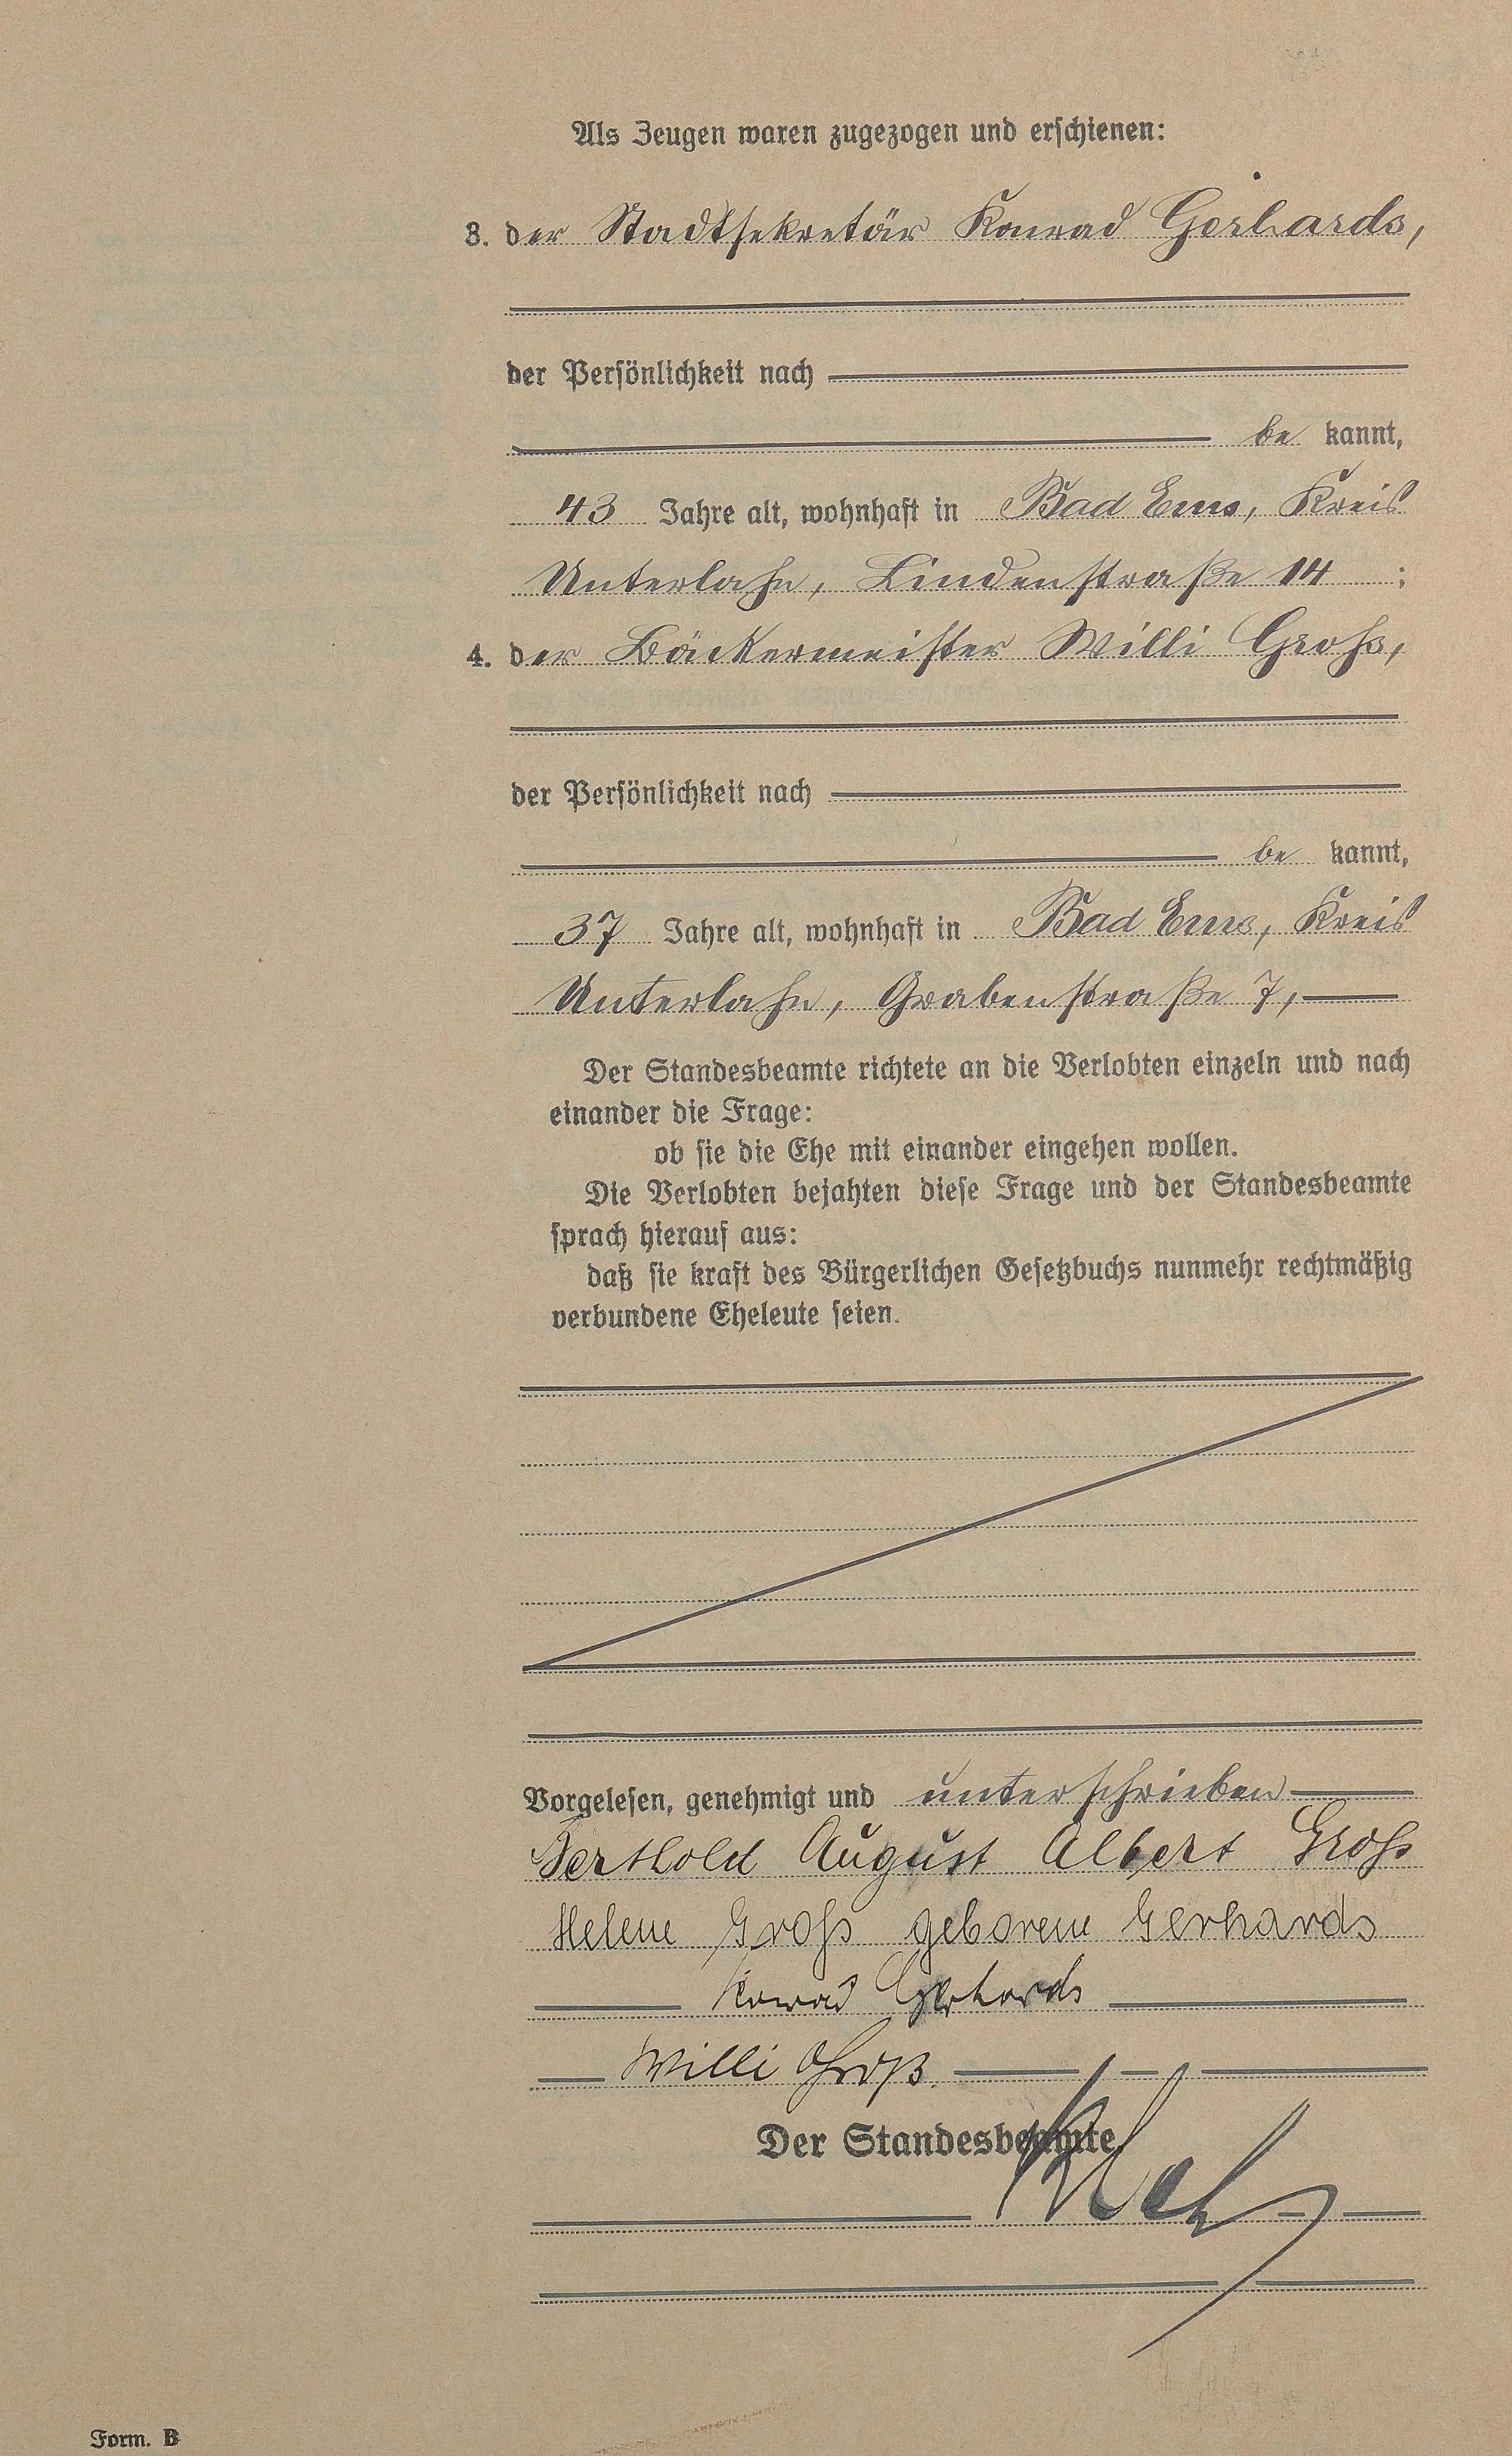 Als Zeugen waren zugezogen und erschienen:
3. der Stadtsekretär Konrad Gerhards,
der Persönlichkeit nach
be kannt,
43 Jahre alt, wohnhaft in Bad Ems, Kreis
Unterlahn, Lindenstraße 14 ;
4. der Bäckermeister Willi Groß,
der Persönlichkeit nach
be kannt,
37 Jahre alt, wohnhaft in Bad Ems, Kreis
Unterlahn, Grabenstraße 7,
Der Standesbeamte richtete an die Verlobten einzeln und nach
einander die Frage:
ob sie die Ehe mit einander eingehen wollen.
Die Verlobten bejahten diese Frage und der Standesbeamte
sprach hierauf aus:
daß sie kraft des Bürgerlichen Gesetzbuchs nunmehr rechtmäßig
verbundene Eheleute seien.
Vorgelesen, genehmigt und unterschrieben
Berthold August Albert Groß
Helene Groß geborene Gerhards
Konrad Gerhards
Willi Groß.
Der Standesbeamte.
Form. B